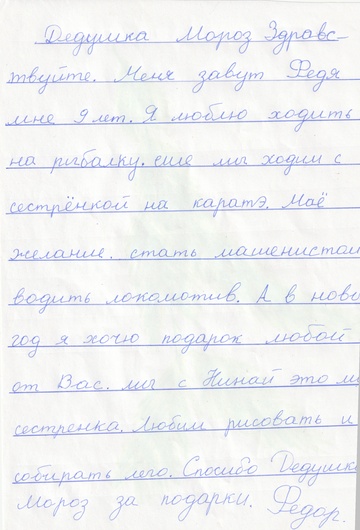 Дедушка Мороз Здравс-
твуйте. Меня завут Федя
мне 9 лет. Я люблю ходить
на рыбалку. еще мы ходим с
сестрёнкой на каратэ. Маё
желание. стать машенистом
водить локомотив. А в новы
год я хочю подарок любой
от Вас. мы с Нинай это м
сестренка. Любим рисовать и
собирать лего. Спосибо Дедушка
Мороз за подарки. Федор